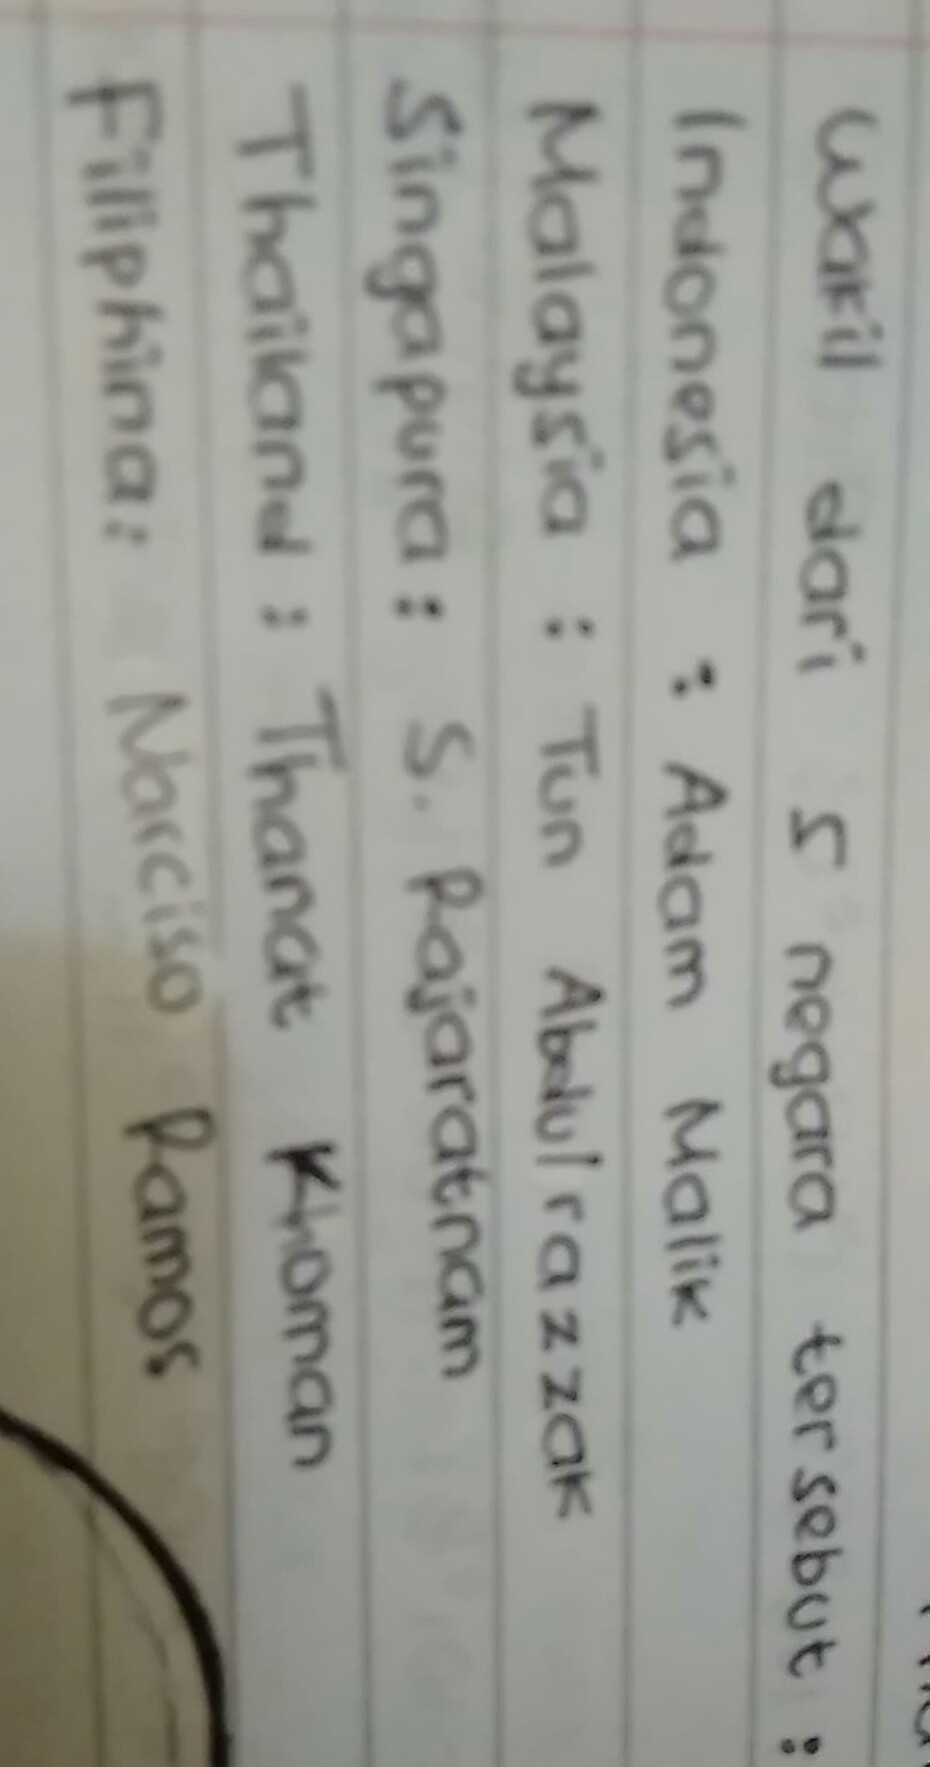 Wakil dari 5 negara tersebut :
Indonesia : Adam Malik
Malaysia : Tun Abdul razzak
Singapura : S. Rajaratnam
Thailand : Thanat Khoman
Filiphina : Narciso Ramos